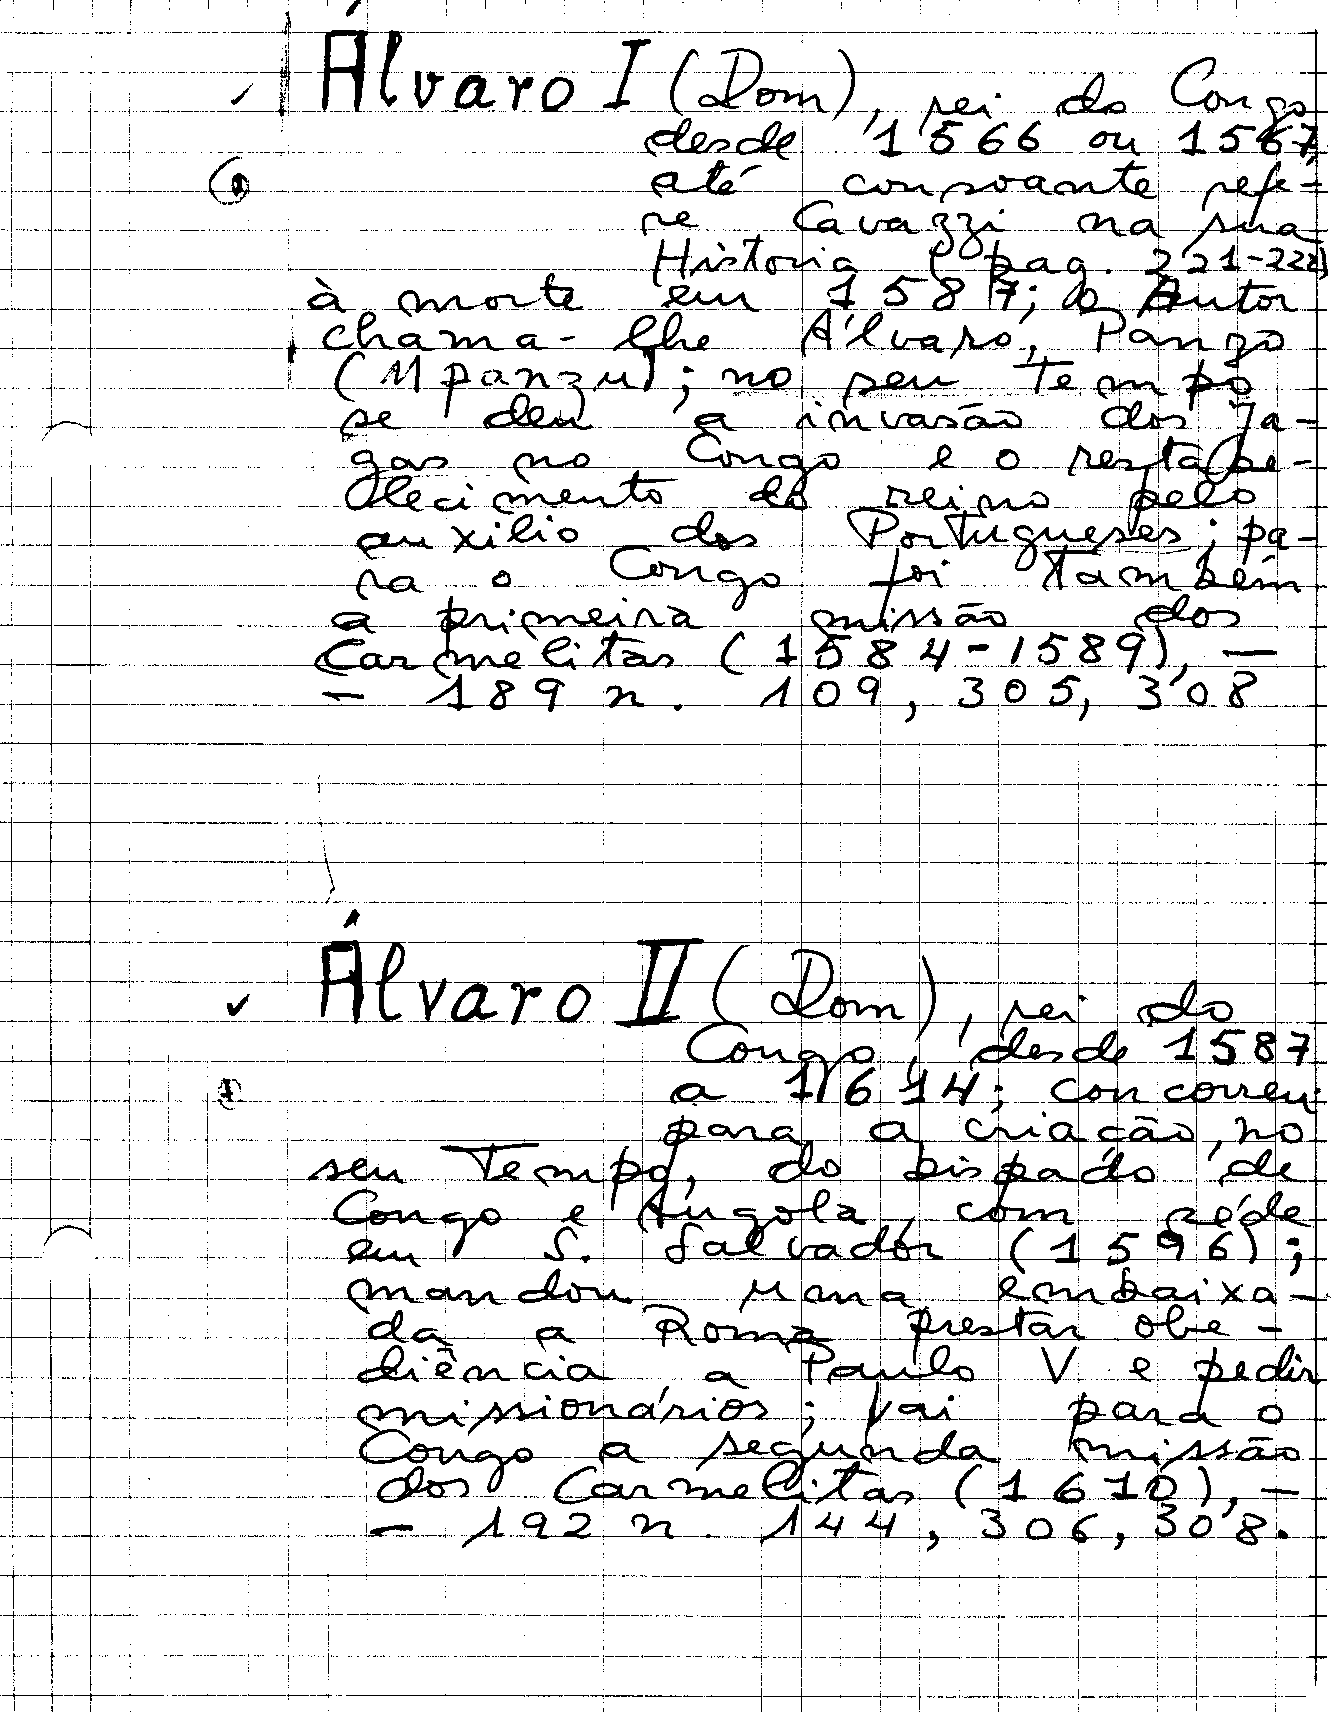 ✓ Álvaro I (Dom), rei do Congo
desde 1566 ou 1567
até consoante refe-
re Cavazzi na sua
Historia (pag. 221-222)
à morte em 1587; o Autor
chama-lhe Álvaro Panzo
(Mpanzu); no seu tempo
se deu a invasão dos Ja-
gas no Congo e o restabe-
lecimento do reino pelo
auxilio dos Portugueses; pa-
ra o Congo foi também
a primeira missão dos
Carmelitas (1584-1589), —
— 189 n. 109, 305, 308
✓ Álvaro II (Dom), rei do
Congo, desde 1587
a 1614; concorreu
para a criação, no
seu tempo, do bispado de
Congo e Angola, com séde
em S. Salvador (1596);
mandou uma embaixa-
da a Roma prestar obe-
diência a Paulo V e pedir
missionários; vai para o
Congo a segunda missão
dos Carmelitas (1610), —
— 192 n. 144, 306, 308.